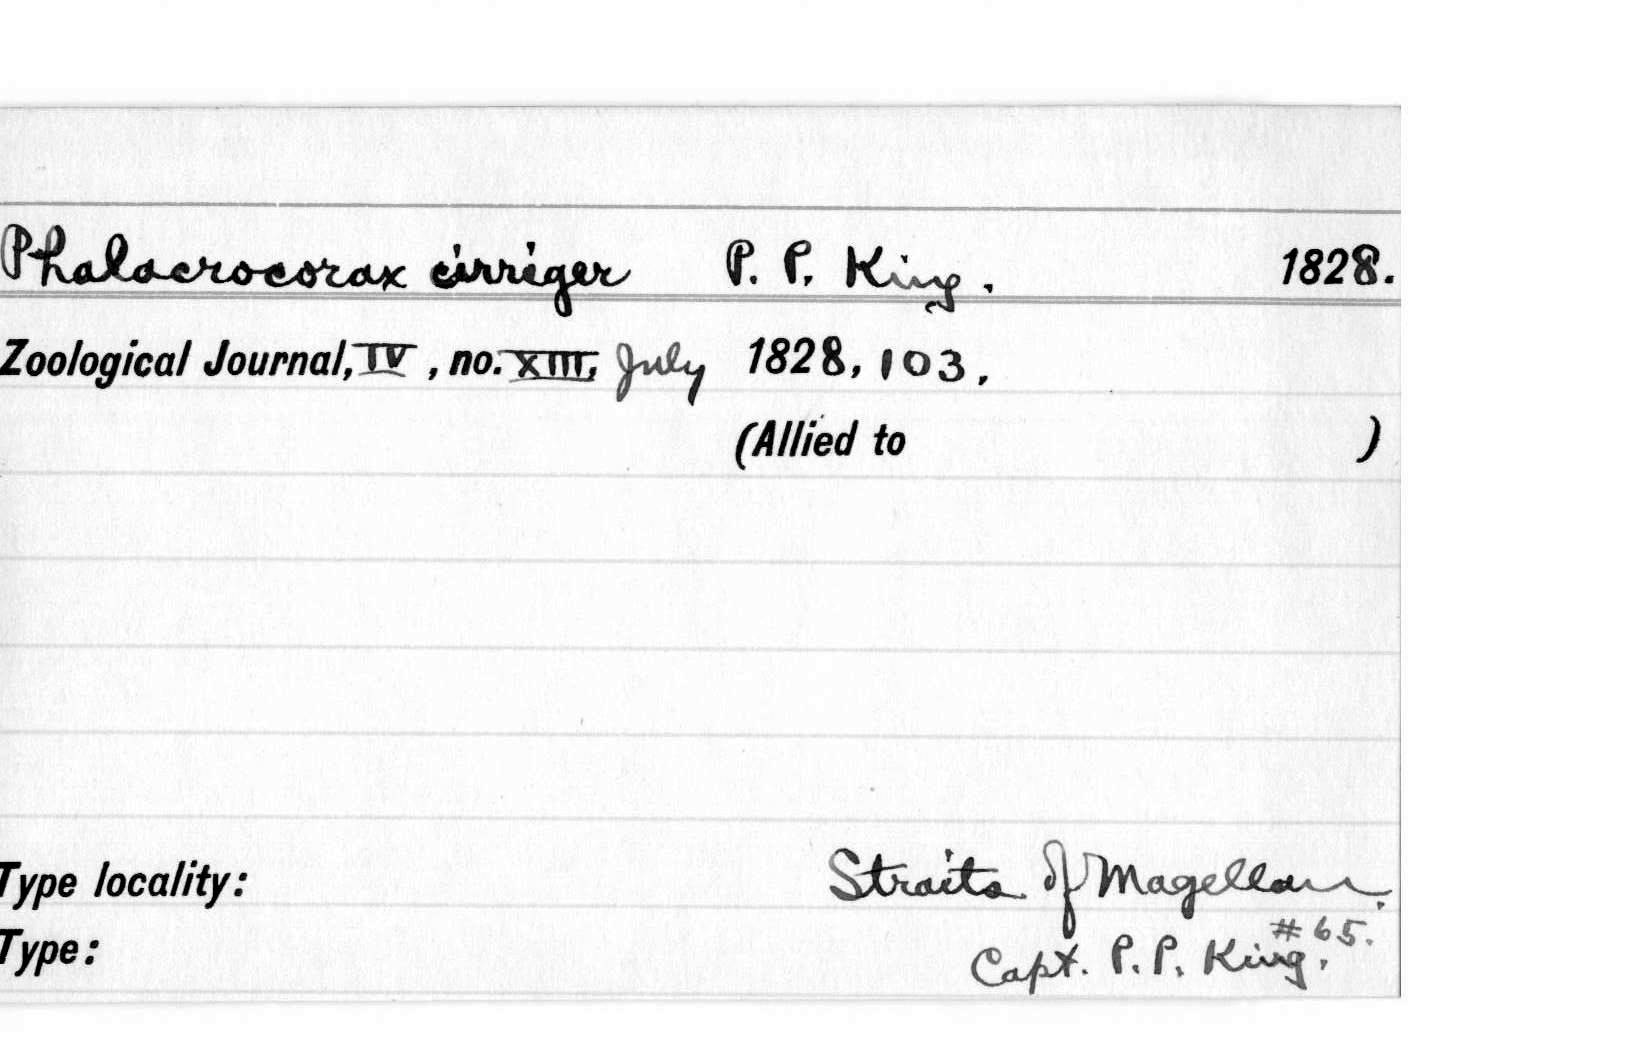 Phalacrocorax cirriger P. P. King. 1828.
Zoological Journal, IV, no. XIII, July 1828, 103.
(Allied to )
Type locality: Straits of Magellan.
#65.
Type: Capt. P. P. King.